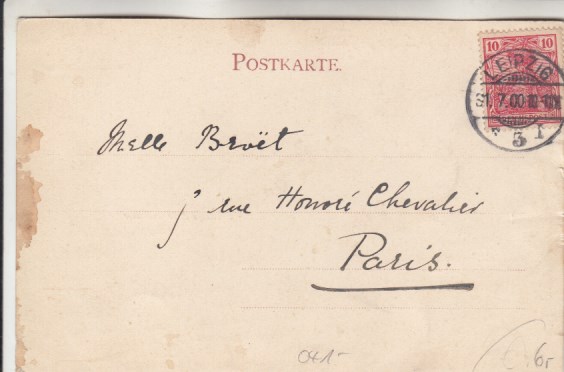 POSTKARTE.
10 10
LEIPZIG
31. 7.00
3 I
Melle Brvët
7 rue Honoré Chevalier
Paris.